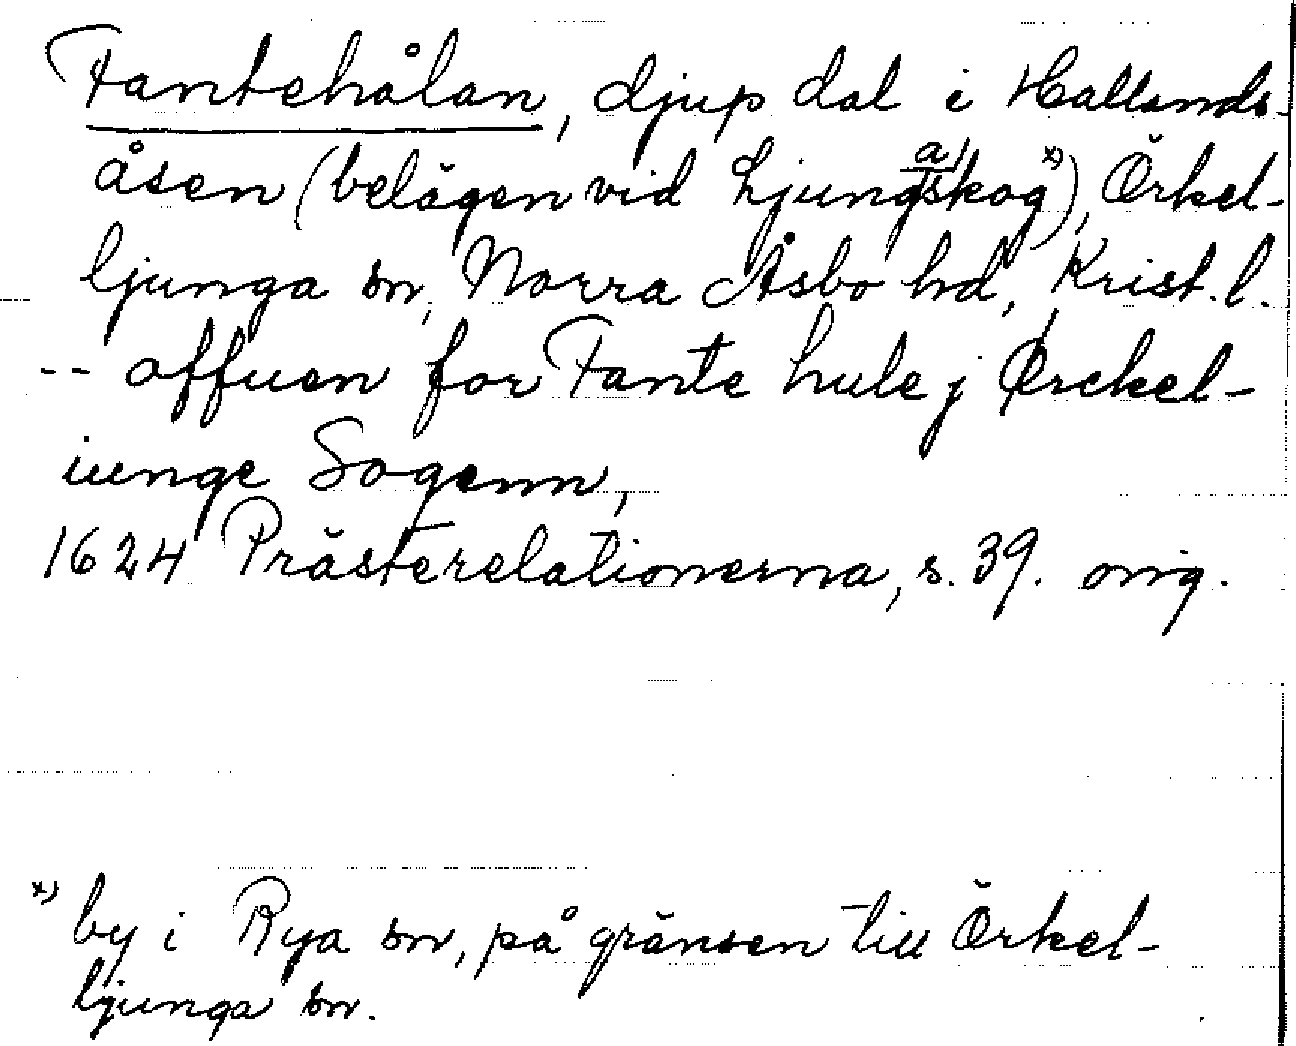 Fantehålan, djup dal i Hallands-
åsen (belägen vid Ljungaskog x)), Örkel-
ljunga sn, Norra Åsbo hd, Krist. l.
-- offuen for Fante hule j Ørckel-
iunge Sogenn,
1624 Prästerelationerna, s. 39. orig.
x) by i Rya sn, på gränsen till Örkel-
ljunga sn.